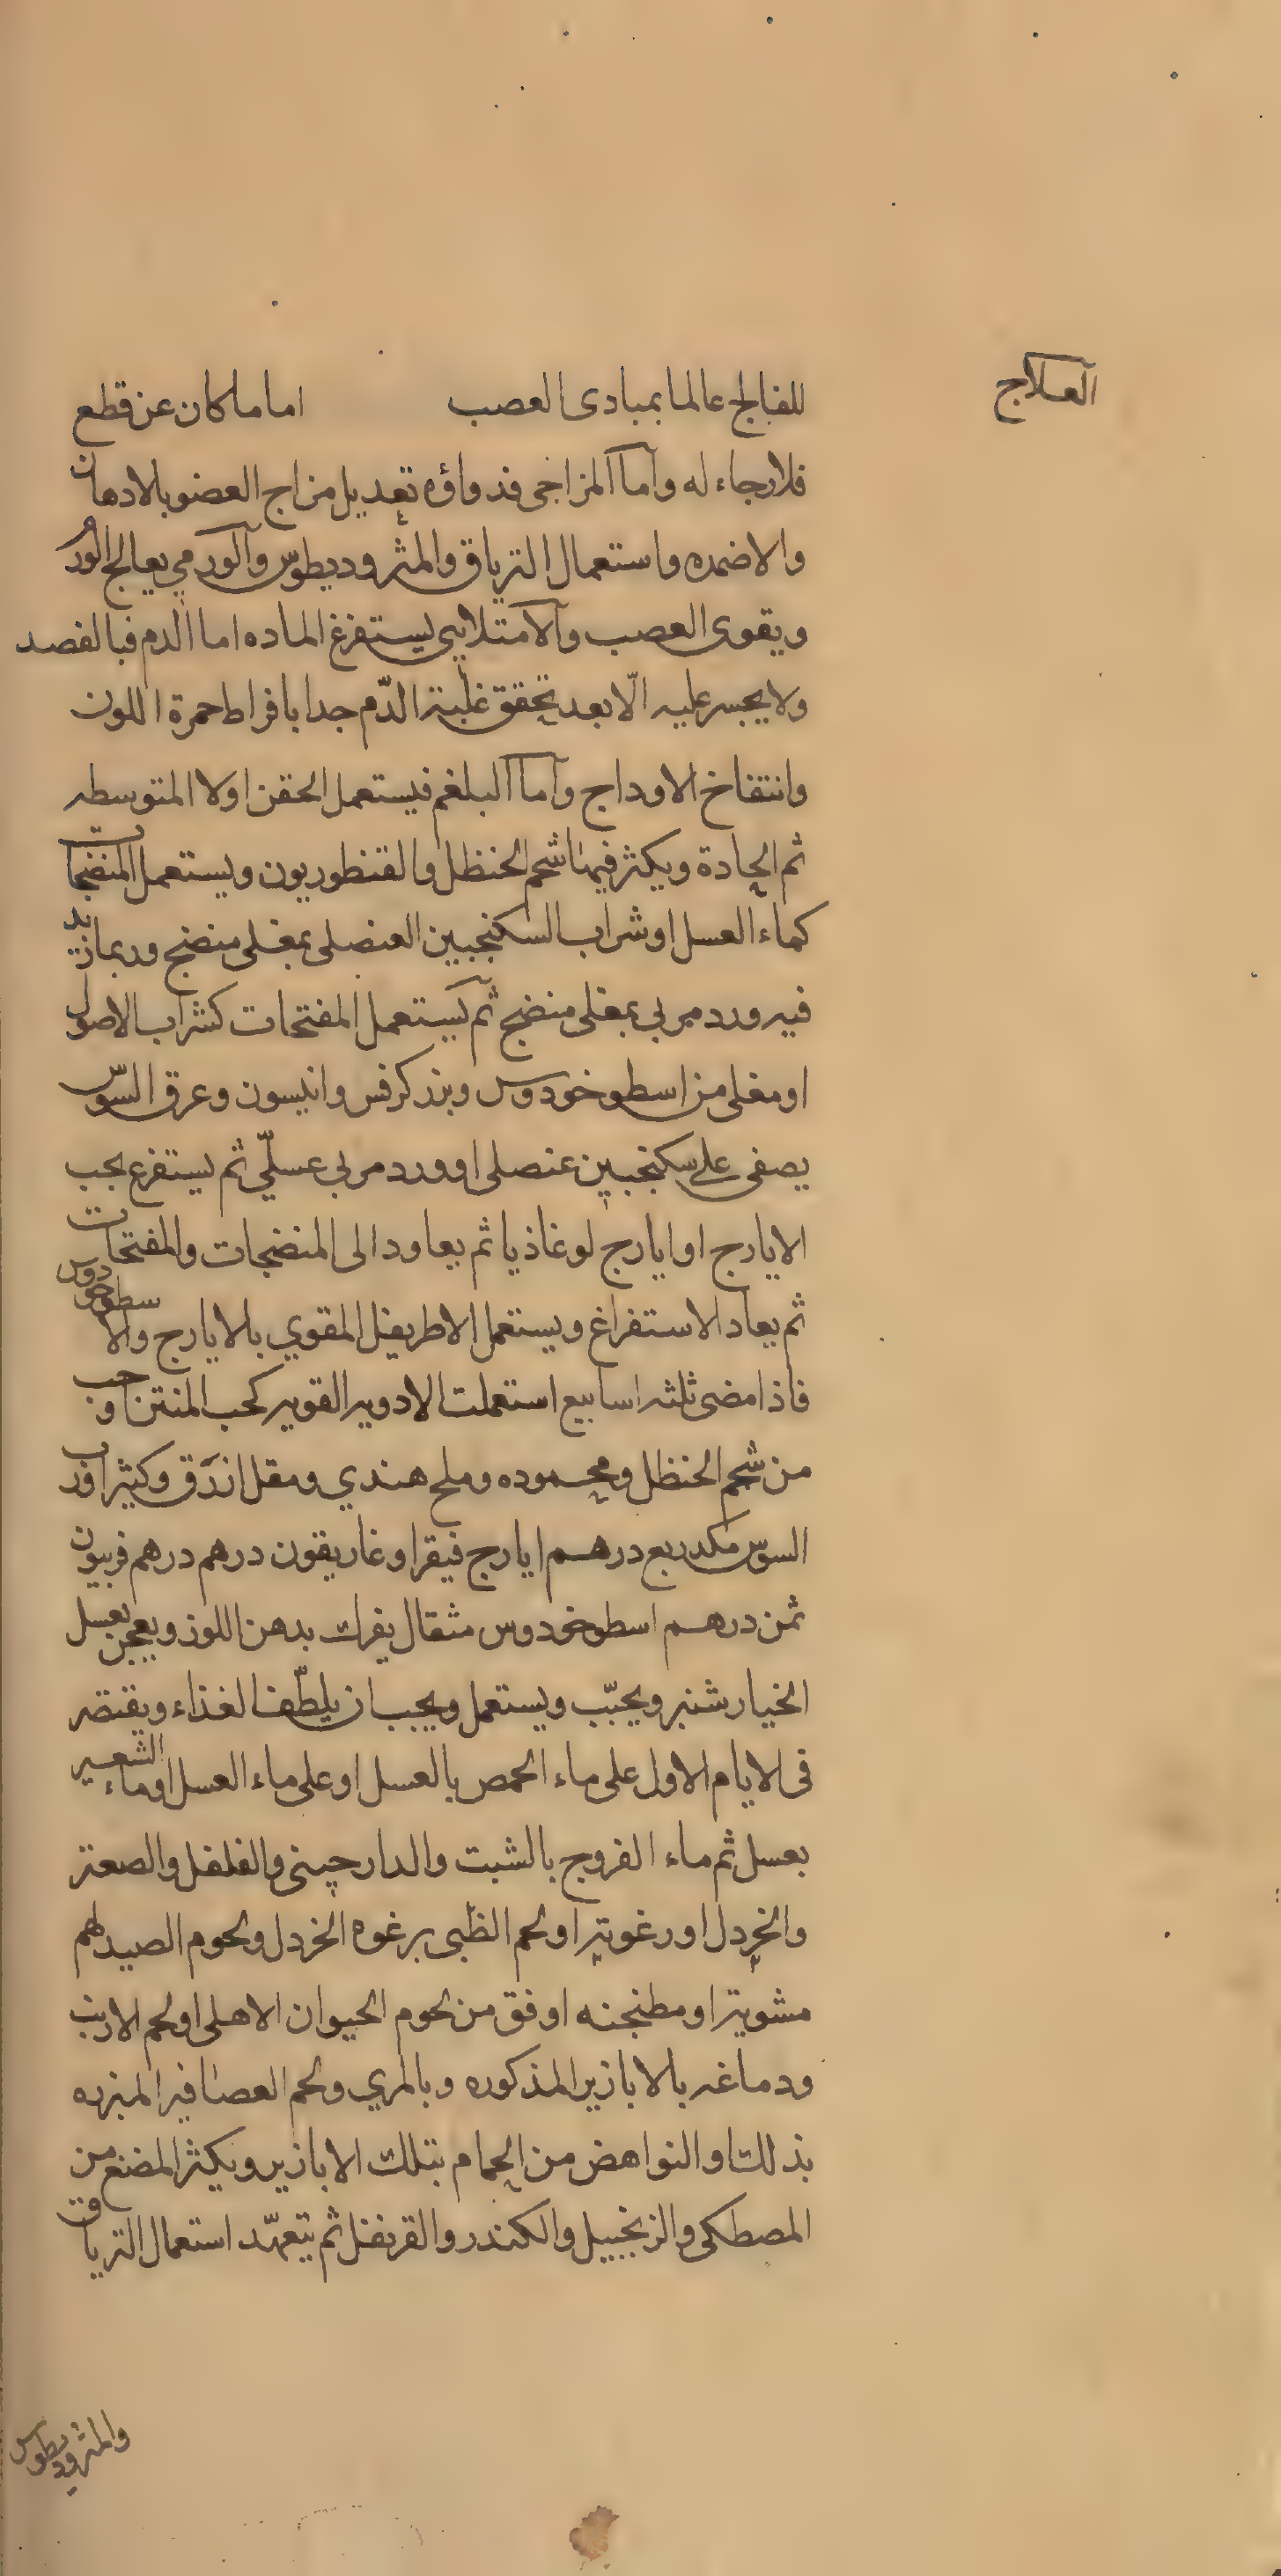 العلاج
للفالج عالما بمبادى العصب اما ما كان عن قطع
فلا رجاء له واما المزاجى فدواؤه تعديل مزاج العضو بالادهان
والاضمده واستعمال الترياق والمثروديطوس والورمي يعالج الورم
ويقوى العصب والامتلايى يستفرغ الماده اما الدم فبالفصد
ولا يجسر عليه الّا بعد تحقق غلبة الدّم جدا بافراط حمرة اللون
وانتفاخ الاوداج واما البلغم فيستعمل الحقن اولا المتوسطه
ثم الحادة ويكثر فيها شحم الحنظل والقنطوريون ويستعمل المنضجات
كماء العسل او شراب السكنجبين العنصلى بمغلى منضج وربما زيد
فيه ورد مربي بمغلى منضج ثم يستعمل المفتحات كشراب الاصول
او مغلى من اسطوخودوس وبزر كرفس وانيسون وعرق السوس
يصفى على سكنجبين عنصلى او ورد مربى عسلّي ثم يستفرغ بحب
الايارج او ايارج لوغاذيا ثم يعاود الى المنضجات والمفتحات
ثم يعاد الاستفراغ ويستعمل الاطريفل المقوي بالايارج والاسطوخودوس
فاذا مضى ثلثه اسابيع استعملت الادويه القويه كحب المنتن او حب
من شحم الحنظل ومحموده وملح هندي ومقل ازرق وكثيرا ورب
السوس مكد ربع درهم ايارج فيقرا وغاريقون درهم درهم فربيون
ثمن درهم اسطوخودوس مثقال يفرك بدهن اللوز ويعجن بعسل
الخيار شنبر ويحبّب ويستعمل ويجب ان يلطّف الغذاء ويقتصر
فى الايام الاول على ماء الحمص بالعسل او على ماء العسل او ماء الشعير
بعسل ثم ماء الفروج بالشبت والدارچينى والفلفل والصعتر
والخردل او رغوته او لحم الظبى برغوه الخردل ولحوم الصيد لهم
مشوية او مطنجنه اوفق من لحوم الحيوان الاهلى او لحم الارنب
ودماغه بالابازير المذكوره وبالمري ولحم العصافير المبزره
بذلك او النواهض من الحمام بتلك الابازير ويكثر المضغ من
المصطكى والزنجبيل والكندر والقرنفل ثم يتعهّد استعمال الترياق
والمثروديطوس